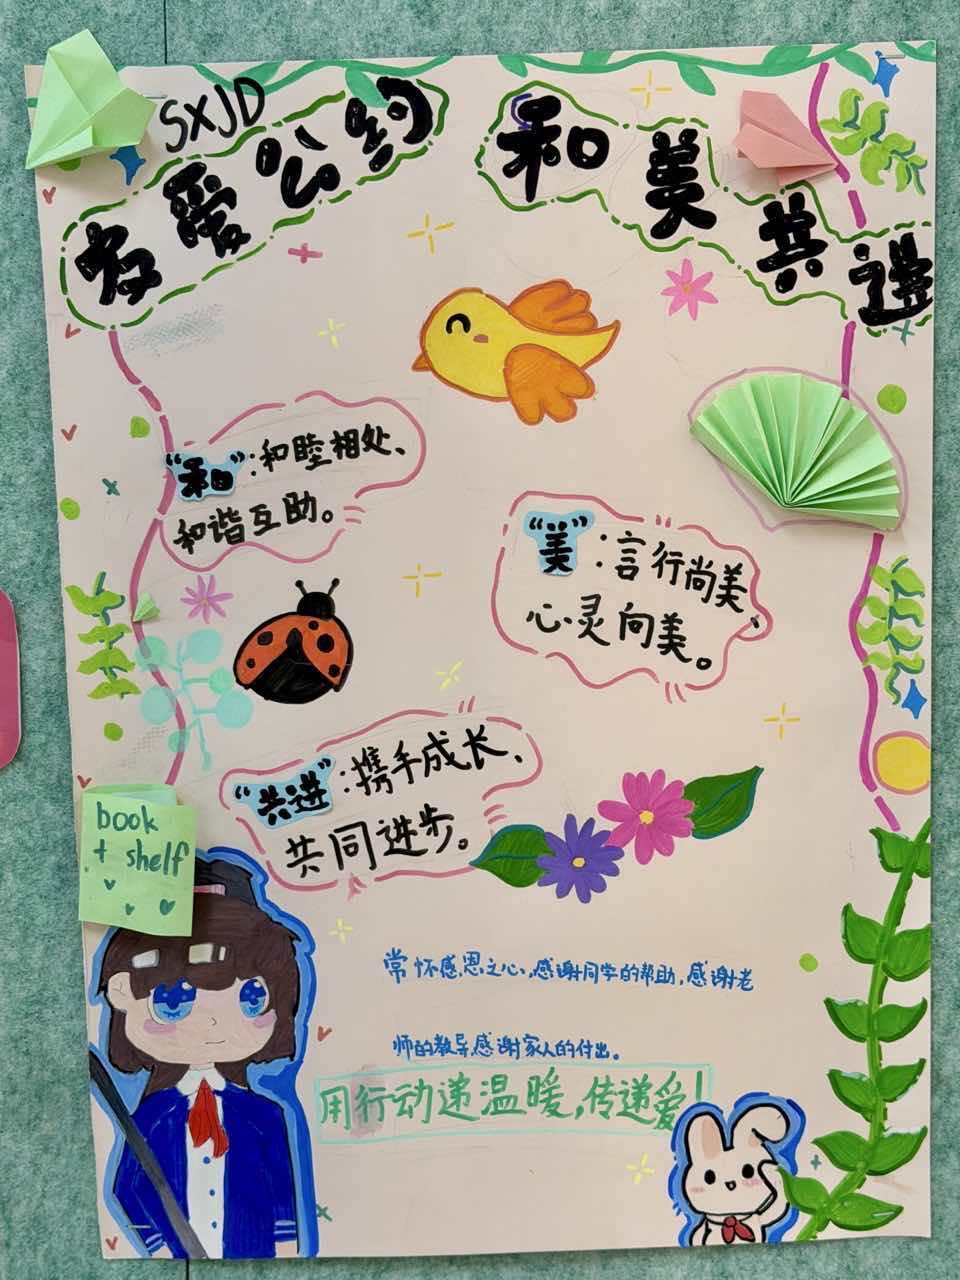 SXJD
友爱公约
和美共进
“和”:和睦相处、
和谐互助。
“美”:言行尚美、
心灵向美。
“共进”:携手成长、
共同进步。
book
+ shelf
常怀感恩之心,感谢同学的帮助,感谢老
师的教导,感谢家人的付出。
用行动递温暖,传递爱!